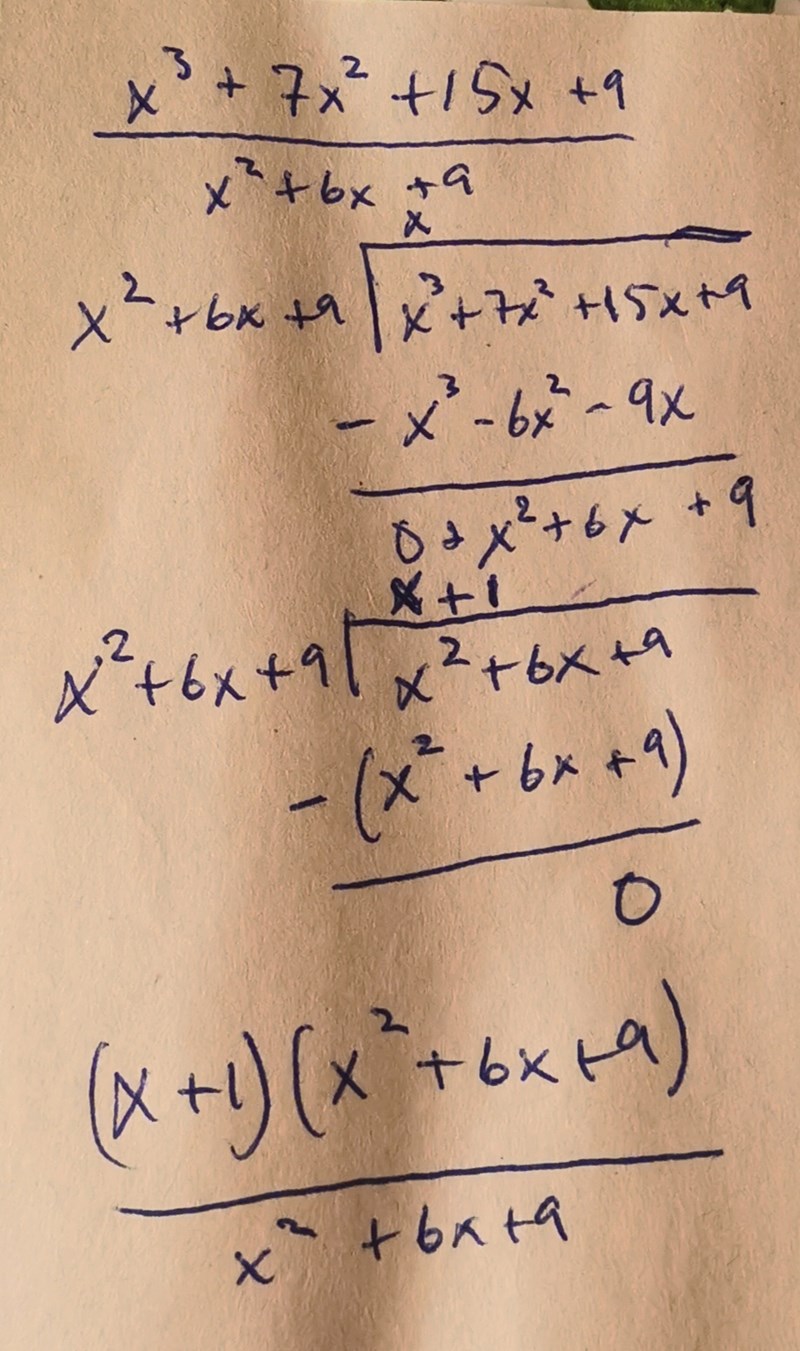 x³ + 7x² + 15x + 9
x² + 6x + 9
x
x² + 6x + 9 x³ + 7x² + 15x + 9
- x³ - 6x² - 9x
0 + x² + 6x + 9
x + 1
x² + 6x + 9 x² + 6x + 9
- (x² + 6x + 9)
0
(x + 1) (x² + 6x + 9)
x² + 6x + 9